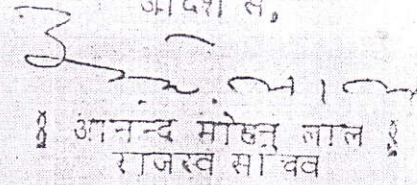 आदेश से,
( आनन्द मोहन लाल )
राजस्व सचिव